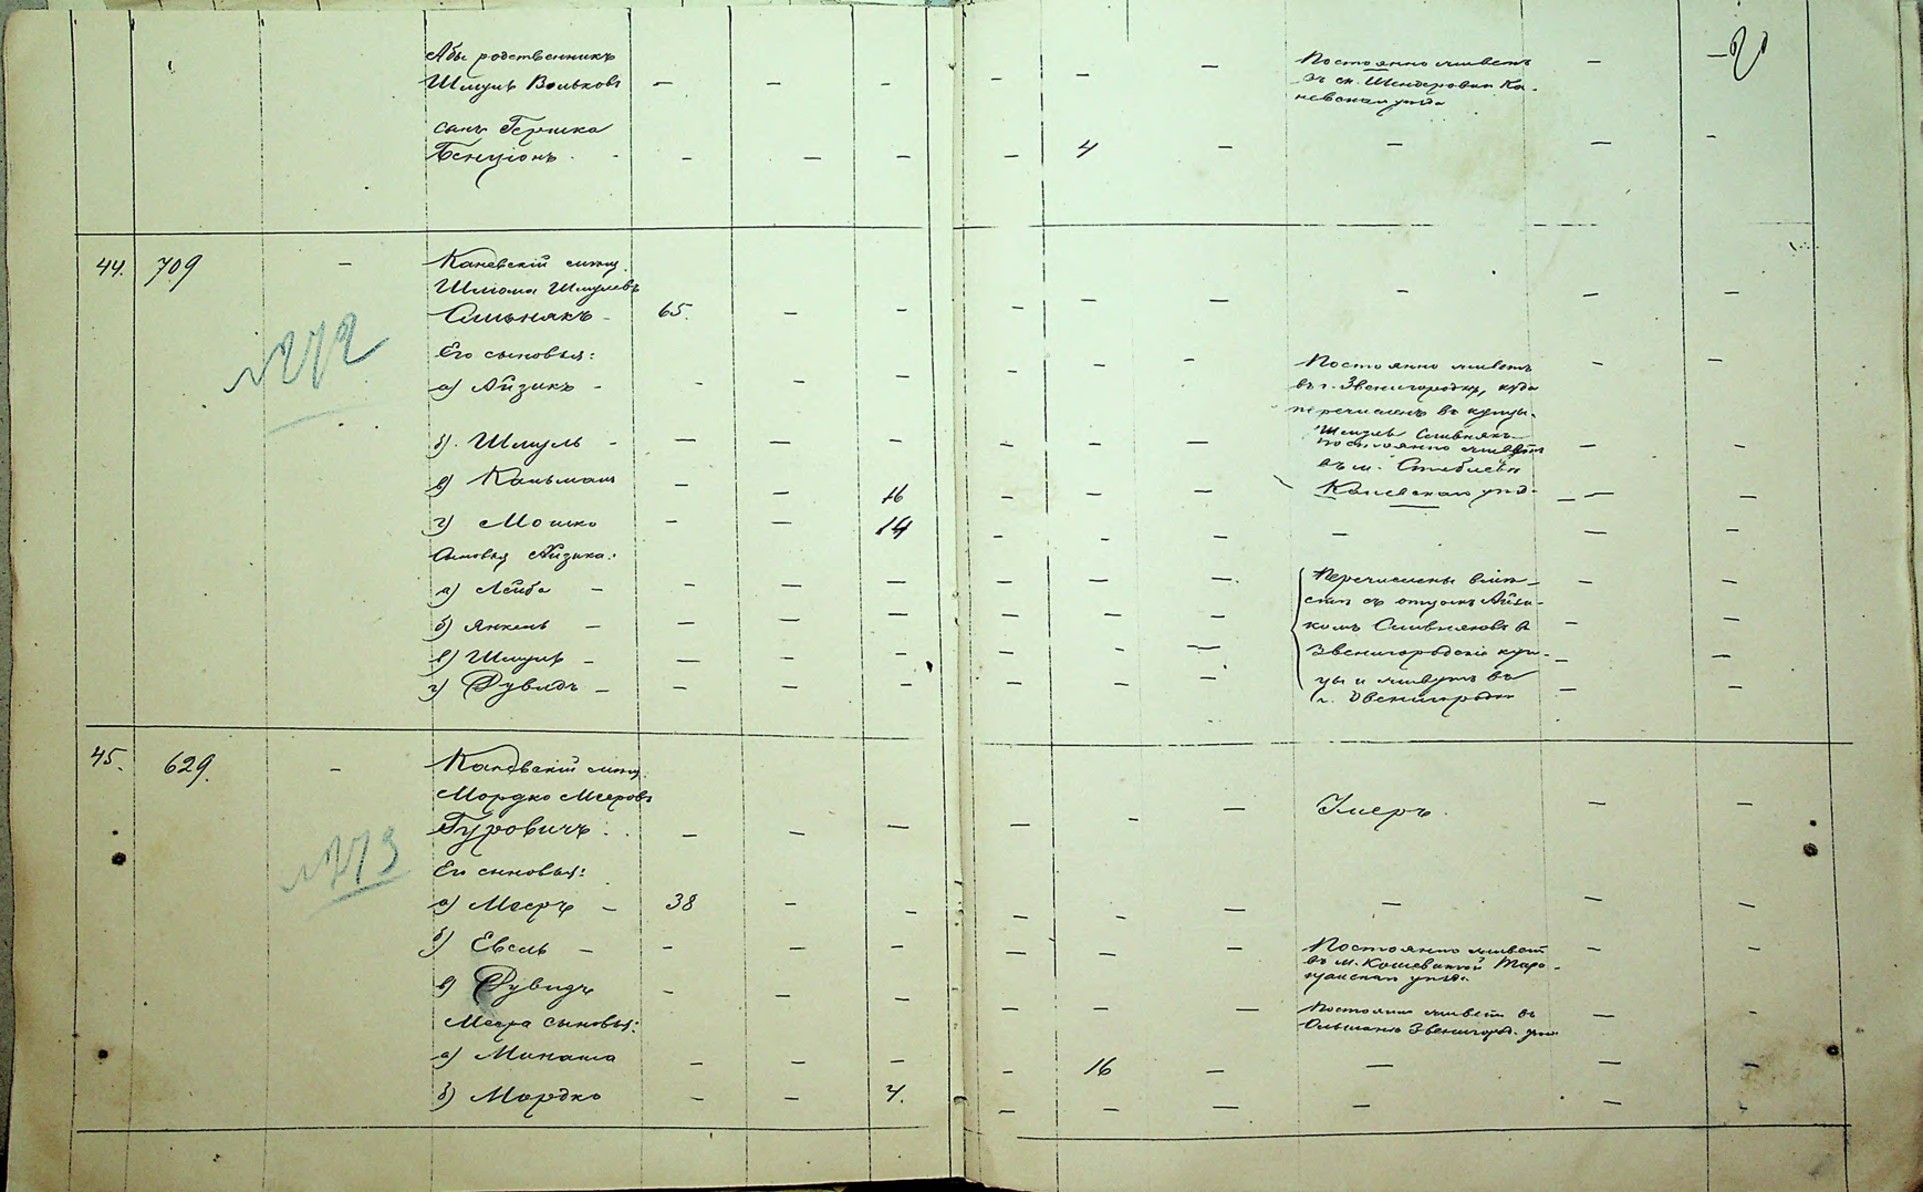 Абы родственникъ
Шмуль Вольковъ — — — — — —
Постоянно живетъ
въ м. Шендеровки Ка-
невскаго уѣзда
— —
сынъ Гершка
Бенціонъ - — — — — 4 — — — —
44. 709 —
Каневскій мѣщ.
Шліома Шмулевъ
Сливнякъ - 65. — — — — — — — —
№ 272
Его сыновья:
а) Айзикъ - — — — — — —
Постоянно живетъ
въ г. Звенигородкѣ, куда
перечисленъ въ купцы.
— —
б). Шмуль - — — — — — —
Шмуль Сливнякъ
постоянно живетъ
въ м. Стеблевѣ
Каневскаго уѣзд.
—
в) Кальманъ — — 16 — — — — —
г) Мошко — — 14 — — — — — —
Сыновья Айзика:
а) Лейба — — — — — — —
б) Янкель — — — — — — —
в) Шмуль — — — — — — —
г) Дувидъ — — — — — — —
Перечислены вмѣ-
стѣ съ отцомъ Айзи-
комъ Сливнякомъ въ
Звенигородскіе куп-
цы и живутъ въ
г. Звенигородкѣ
45. 629. —
Каневскій мѣщ.
Мордко Мееровъ
Гуровичъ. — — — — — — Умеръ. — —
№ 273
Его сыновья:
а) Мееръ — 38 — — — — — — — —
б) Евель — — — — — — —
Постоянно живетъ
въ м. Кошеватой Тара-
щанскаго уѣзда.
— —
в) Дувидъ — — — — — —
Постоянно живетъ въ
Ольшанѣ Звенигород. уѣз.
— —
Меера сыновья:
а) Минаша — — — — 16 — — — —
б) Мордко — — 4. — — — — — —